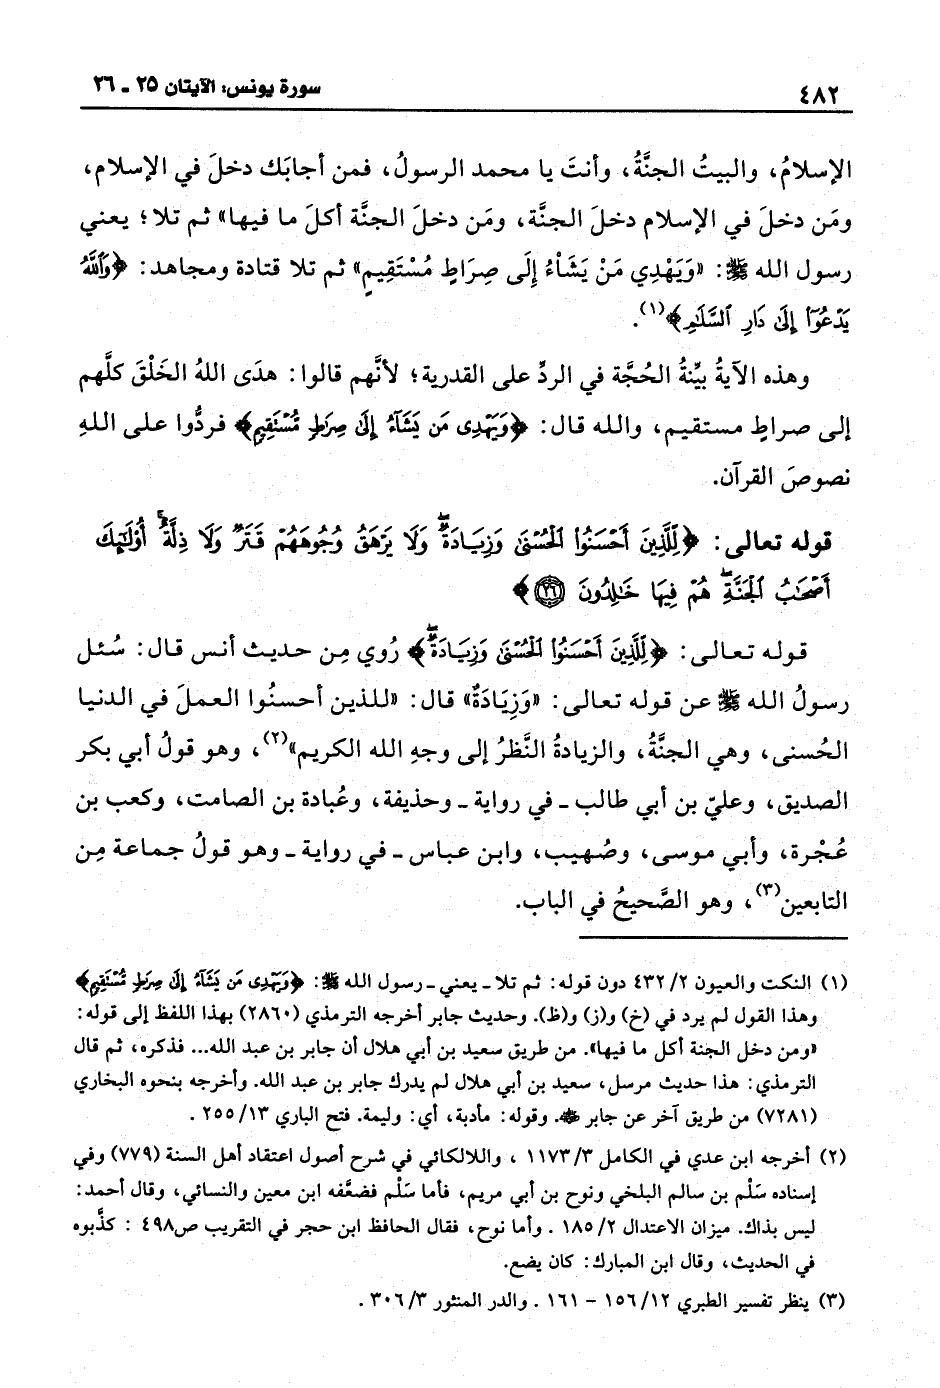 ٤٨٢
سورة يونس: الآيتان ٢٥ ـ ٢٦
الإسلامُ، والبيتُ الجنَّةُ، وأنتَ يا محمد الرسولُ، فمن أجابَك دخلَ في الإسلام،
ومَن دخلَ في الإسلام دخلَ الجنة، ومَن دخلَ الجنَّة أكلَ ما فيها» ثم تلا؛ يعني
رسول الله ﷺ: «وَيَهْدِي مَنْ يَشَاْءُ إِلَى صِرَاطٍ مُسْتَقِيمٍ» ثم تلا قتادة ومجاهد: ﴿وَٱللَّهُ
يَدْعُوٓاْ إِلَىٰ دَارِ ٱلسَّلَٰمِ﴾(١).
وهذه الآيةُ بيِّنةُ الحُجَّة في الردِّ على القدرية؛ لأنَّهم قالوا: هدَى اللهُ الخَلْقَ كلَّهم
إلى صراطٍ مستقيم، والله قال: ﴿وَيَهْدِى مَن يَشَآءُ إِلَىٰ صِرَٰطٍ مُّسْتَقِيمٍ﴾ فردُّوا على اللهِ
نصوصَ القرآن.
قوله تعالى: ﴿لِّلَّذِينَ أَحْسَنُواْ ٱلْحُسْنَىٰ وَزِيَادَةٌۖ وَلَا يَرْهَقُ وُجُوهَهُمْ قَتَرٌ وَلَا ذِلَّةٌۚ أُوْلَٰٓئِكَ
أَصْحَٰبُ ٱلْجَنَّةِۖ هُمْ فِيهَا خَٰلِدُونَ ۝٢٦﴾
قوله تعالى: ﴿لِّلَّذِينَ أَحْسَنُواْ ٱلْحُسْنَىٰ وَزِيَادَةٌۖ﴾ رُوي مِن حديث أنس قال: سُئل
رسولُ الله ﷺ عن قوله تعالى: «وَزِيَادَةٌ» قال: «للذين أحسنُوا العملَ في الدنيا
الحُسنى، وهي الجنَّةُ، والزيادةُ النَّظرُ إلى وجهِ الله الكريم»(٢)، وهو قولُ أبي بكر
الصديق، وعليّ بن أبي طالب ـ في رواية ـ وحذيفة، وعُبادة بن الصامت، وكعب بن
عُجْرة، وأبي موسى، وصُهيب، وابن عباس ـ في رواية ـ وهو قولُ جماعة مِن
التابعين(٣)، وهو الصَّحيحُ في الباب.
(١) النكت والعيون ٤٣٢/٢ دون قوله: ثم تلا ـ يعني ـ رسول الله ﷺ: ﴿وَيَهْدِى مَن يَشَآءُ إِلَىٰ صِرَٰطٍ مُّسْتَقِيمٍ﴾
وهذا القول لم يرد في (خ) و(ز) و(ظ). وحديث جابر أخرجه الترمذي (٢٨٦٠) بهذا اللفظ إلى قوله:
«ومن دخل الجنة أكل ما فيها». من طريق سعيد بن أبي هلال أن جابر بن عبد الله... فذكره، ثم قال
الترمذي: هذا حديث مرسل، سعيد بن أبي هلال لم يدرك جابر بن عبد الله. وأخرجه بنحوه البخاري
(٧٢٨١) من طريق آخر عن جابر ﷺ. وقوله: مأدبة، أي: وليمة. فتح الباري ٢٥٥/١٣ .
(٢) أخرجه ابن عدي في الكامل ١١٧٣/٣ ، واللالكائي في شرح أصول اعتقاد أهل السنة (٧٧٩) وفي
إسناده سَلْم بن سالم البلخي ونوح بن أبي مريم، فأما سَلْم فضعَّفه ابن معين والنسائي، وقال أحمد:
ليس بذاك. ميزان الاعتدال ١٨٥/٢ . وأما نوح، فقال الحافظ ابن حجر في التقريب ص٤٩٨ : كذَّبوه
في الحديث، وقال ابن المبارك: كان يضع.
(٣) ينظر تفسير الطبري ١٥٦/١٢ - ١٦١ . والدر المنثور ٣٠٦/٣ .